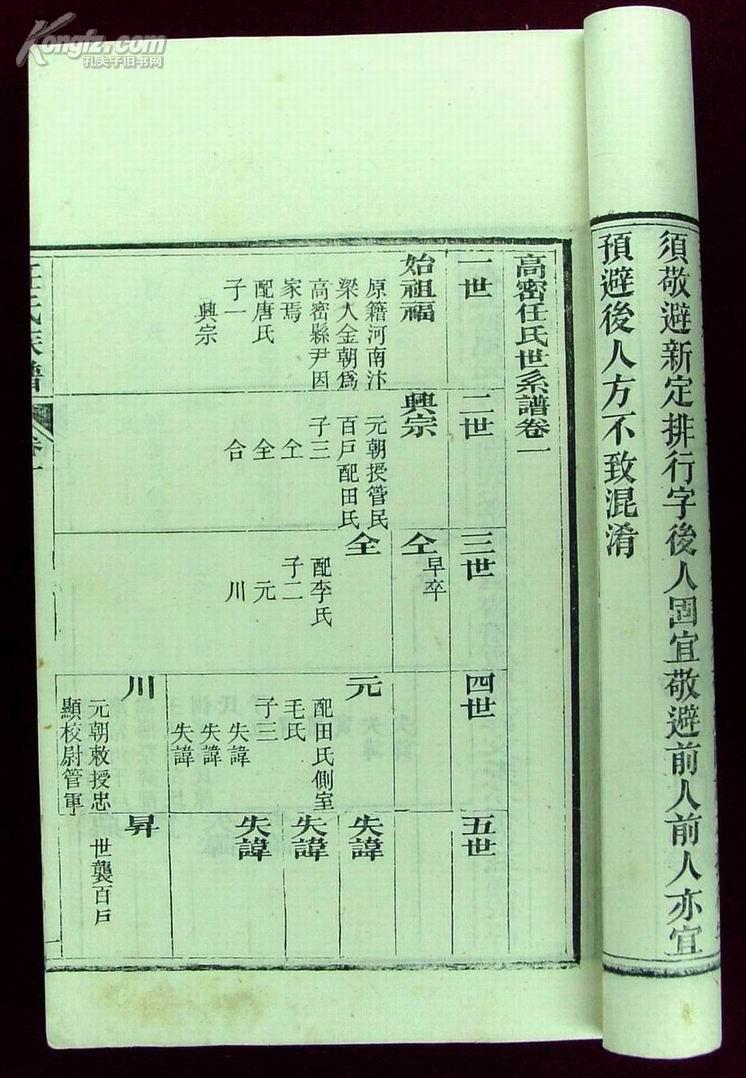 Kongfz.com
孔夫子旧书网
須敬避新定排行字後人固宜敬避前人前人亦宜
預避後人方不致混淆
高密任氏世系譜卷一
一世
始祖福
原籍河南汴
梁人金朝為
高密縣尹因
家焉
配唐氏
子一
興宗
二世
興宗
元朝授管民
百戶配田氏
子三
仝
全
合
三世
仝
早卒
全
配李氏
子二
元
川
四世
元
配田氏側室
毛氏
子三
失諱
失諱
失諱
川
元朝敕授忠
顯校尉管軍
五世
失諱
失諱
失諱
昇
世襲百戶
任氏族譜
卷一
一